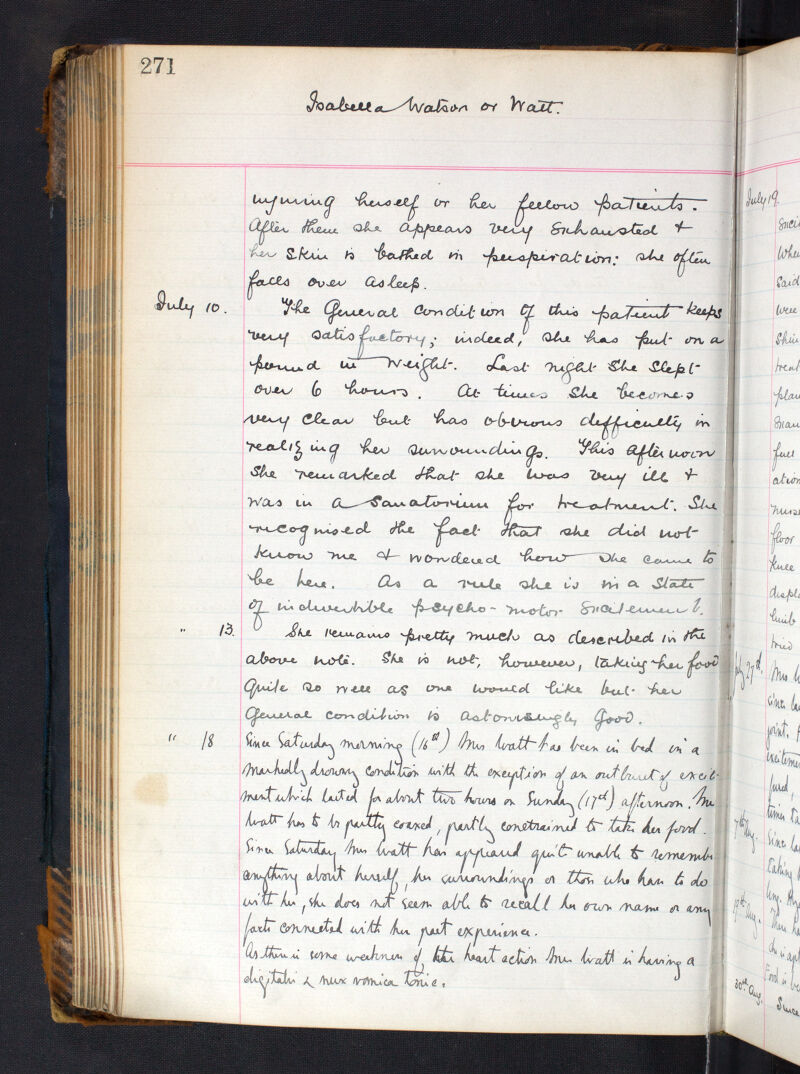 271
Isabella Watson or Watt.
injuring herself or her fellow patients.
After these she appears very exhausted &
her skin is bathed in perspiration: she often
falls over asleep.
July 10. The General condition of this patient keeps
very satisfactory; indeed, she has put on a
pound in weight. Last night she slept
over 6 hours. At times she becomes
very clear but has obvious difficulty in
realizing her surroundings. This afternoon
she remarked that she was very ill &
was in a Sanatorium for treatment. She
recognised the fact that she did not
know me & wondered how she came to
be here. As a rule she is in a state
of indivertible psycho-motor excitement.
" 13. She remains pretty much as described in the
above note. She is not, however, taking her food
quite so well as one would like but her
General condition is astonisingly good.
" 18 Since Saturday morning (16th) Mrs Watt has been in bed in a
markedly drowsy condition with the exception of an outburst of excite-
ment which lasted for about two hours on Sunday (17th) afternoon. Mrs
Watt has to be partly coaxed, partly constrained to take her food.
Since Saturday Mrs Watt has appeared quite unable to remember
anything about herself, her surroundings or those who have to do
with her, she does not seem able to recall her own name or any
facts connected with her past experience.
As there is some weakness of heart action Mrs Watt is having a
digitalis & nux vomica tonic.
July 19.
When
said
were
skin
full
ation
nurse
floor
knee
limb
tried
July 27th. Mrs W
since la
joint.
times ta
7th Aug. Since la
taking
17th Aug.
30th Aug. Since